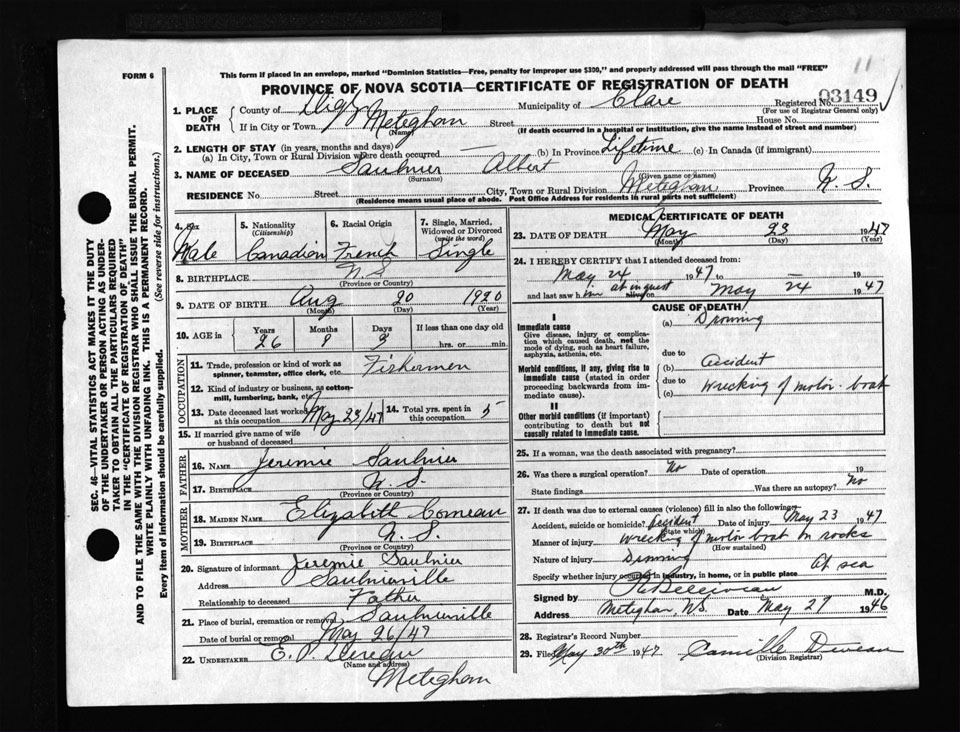 11
FORM 6
This form if placed in an envelope, marked "Dominion Statistics—Free, penalty for improper use $300," and properly addressed will pass through the mail "FREE"
PROVINCE OF NOVA SCOTIA—CERTIFICATE OF REGISTRATION OF DEATH
Registered No. 03149
(For use of Registrar General only)
1. PLACE OF DEATH
County of Digby Municipality of Clare
If in City or Town Meteghan Street House No.
(Name) (If death occurred in a hospital or institution, give the name instead of street and number)
2. LENGTH OF STAY (in years, months and days)
(a) In City, Town or Rural Division where death occurred — (b) In Province Lifetime (c) In Canada (if immigrant)
3. NAME OF DECEASED Saulnier Albert
(Surname) (Given name or names)
RESIDENCE No. Street City, Town or Rural Division Meteghan Province N.S.
(Residence means usual place of abode. Post Office Address for residents in rural parts not sufficient)
4. Sex Male
5. Nationality (Citizenship) Canadian
6. Racial Origin French
7. Single, Married, Widowed or Divorced (write the word) Single
8. BIRTHPLACE N.S.
(Province or Country)
9. DATE OF BIRTH Aug 20 1920
(Month) (Day) (Year)
10. AGE in Years Months Days If less than one day old
26 8 3 hrs. or min.
OCCUPATION
11. Trade, profession or kind of work as spinner, teamster, office clerk, etc. Fishermen
12. Kind of industry or business, as cotton-mill, lumbering, bank, etc.
13. Date deceased last worked at this occupation May 23/47
14. Total yrs. spent in this occupation 5
15. If married give name of wife or husband of deceased
FATHER
16. NAME Jeremie Saulnier
17. BIRTHPLACE N.S.
(Province or Country)
MOTHER
18. MAIDEN NAME Elizabith Comeau
19. BIRTHPLACE N.S.
(Province or Country)
20. Signature of informant Jeremie Saulnier
Address Saulnierville
Relationship to deceased Father
21. Place of burial, cremation or removal Saulnierville
Date of burial or removal May 26/47
22. UNDERTAKER E. P.
(Name and address)
Meteghan
MEDICAL CERTIFICATE OF DEATH
23. DATE OF DEATH May 23 1947
(Month) (Day) (Year)
24. I HEREBY CERTIFY that I attended deceased from:
May 24 1947 to — 19
and last saw him at inquest alive on May 24 1947
CAUSE OF DEATH
I
Immediate cause
Give disease, injury or complication which caused death, not the mode of dying, such as heart failure, asphyxia, asthenia, etc.
(a) Droning
due to
Morbid conditions, if any, giving rise to immediate cause (stated in order proceeding backwards from immediate cause).
(b) accident
due to
(c) wrecking of motor boat
II
Other morbid conditions (if important) contributing to death but not causally related to immediate cause.
25. If a woman, was the death associated with pregnancy?
26. Was there a surgical operation? No Date of operation 19
State findings Was there an autopsy? No
27. If death was due to external causes (violence) fill in also the following:
Accident, suicide or homicide? accident Date of injury May 23 1947
(State which)
Manner of injury wrecking of motor boat on rocks
(How sustained)
Nature of injury Droning
Specify whether injury occurred in industry, in home, or in public place At sea
Signed by Belliveau M.D.
Address Meteghan, N.S. Date May 27 1946
28. Registrar's Record Number
29. Filed May 30th 1947 Camille Deveau
(Division Registrar)
SEC. 46—VITAL STATISTICS ACT MAKES IT THE DUTY
OF THE UNDERTAKER OR PERSON ACTING AS UNDER-
TAKER TO OBTAIN ALL THE PARTICULARS REQUIRED
IN THE "CERTIFICATE OF REGISTRATION OF DEATH"
AND TO FILE THE SAME WITH THE DIVISION REGISTRAR WHO SHALL ISSUE THE BURIAL PERMIT.
WRITE PLAINLY WITH UNFADING INK. THIS IS A PERMANENT RECORD.
Every item of information should be carefully supplied. (See reverse side for instructions.)